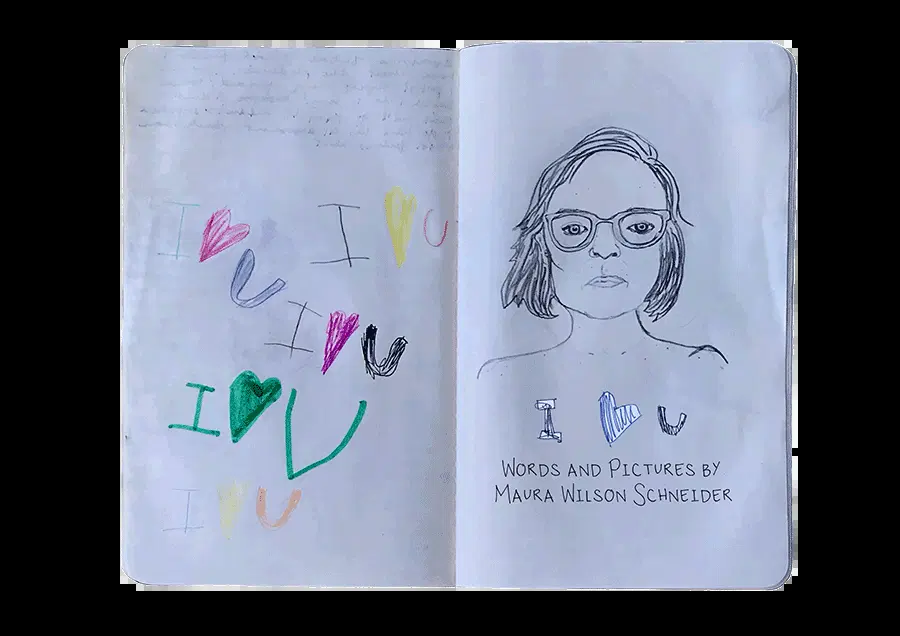 I ♥ U
I ♥ U
I ♥ U
I ♥ U
I ♥ U
I ♥ U
WORDS AND PICTURES BY
MAURA WILSON SCHNEIDER